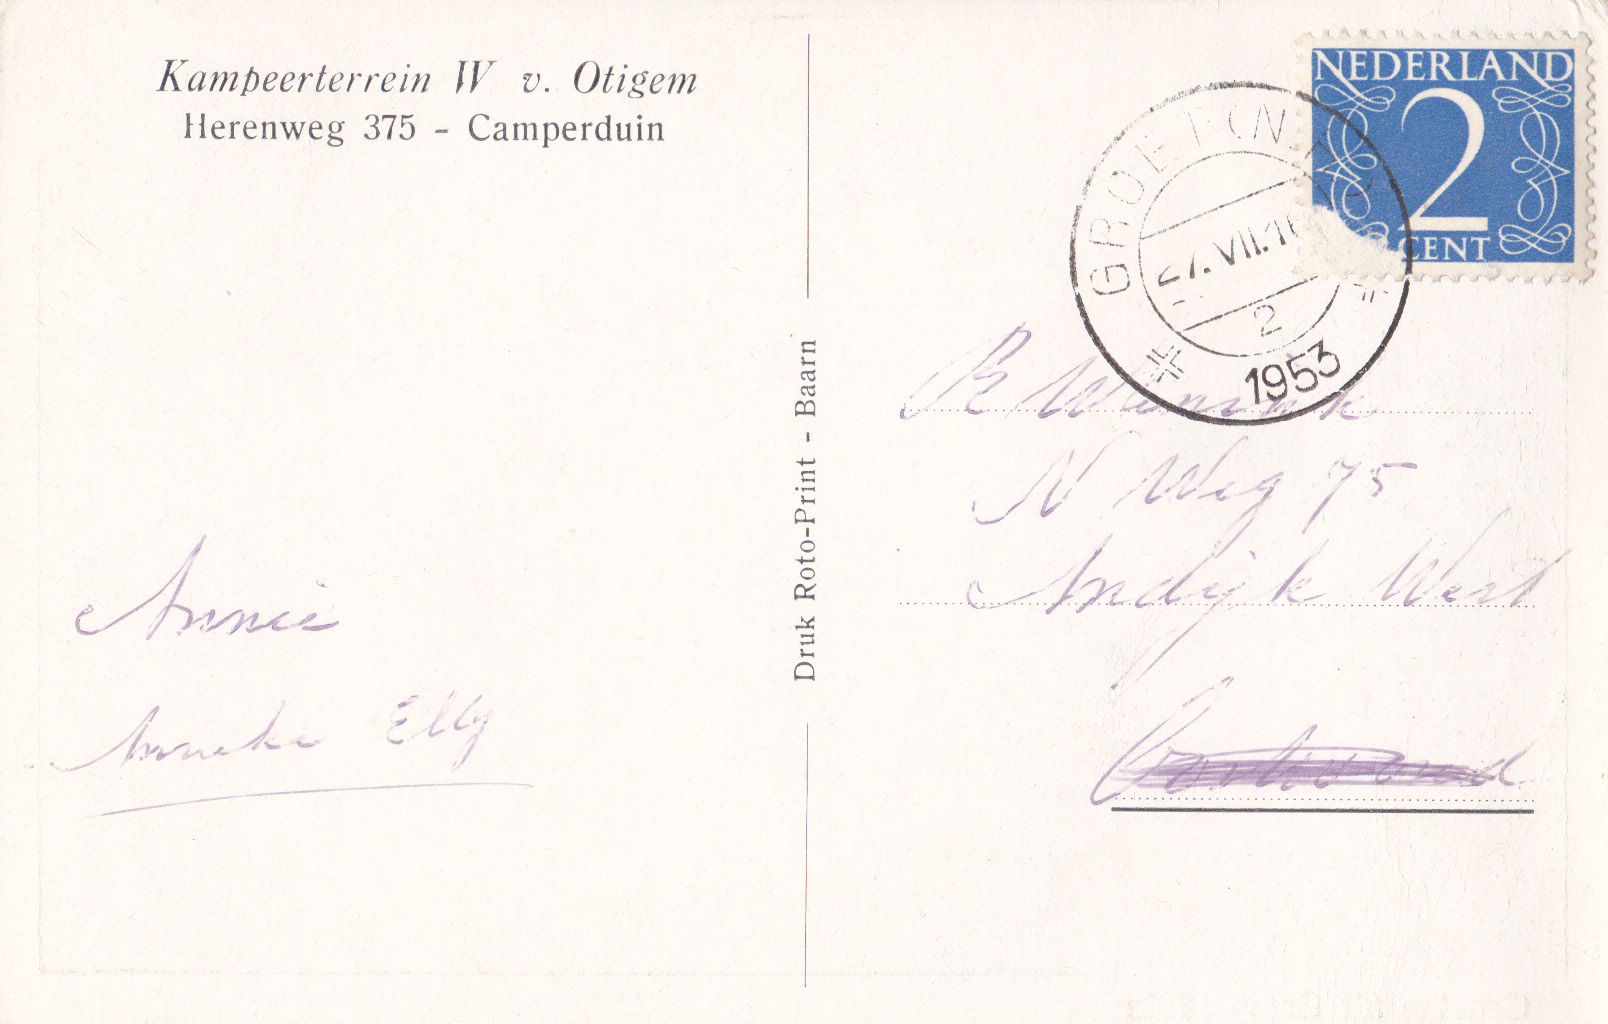 Kampeerterrein W v. Otigem
Herenweg 375 - Camperduin
Annie
Anneke Elly
Druk Roto-Print - Baarn
NEDERLAND
2
CENT
GROET (N.
27.VII.1
2
1953
N Weg 75
Andijk West